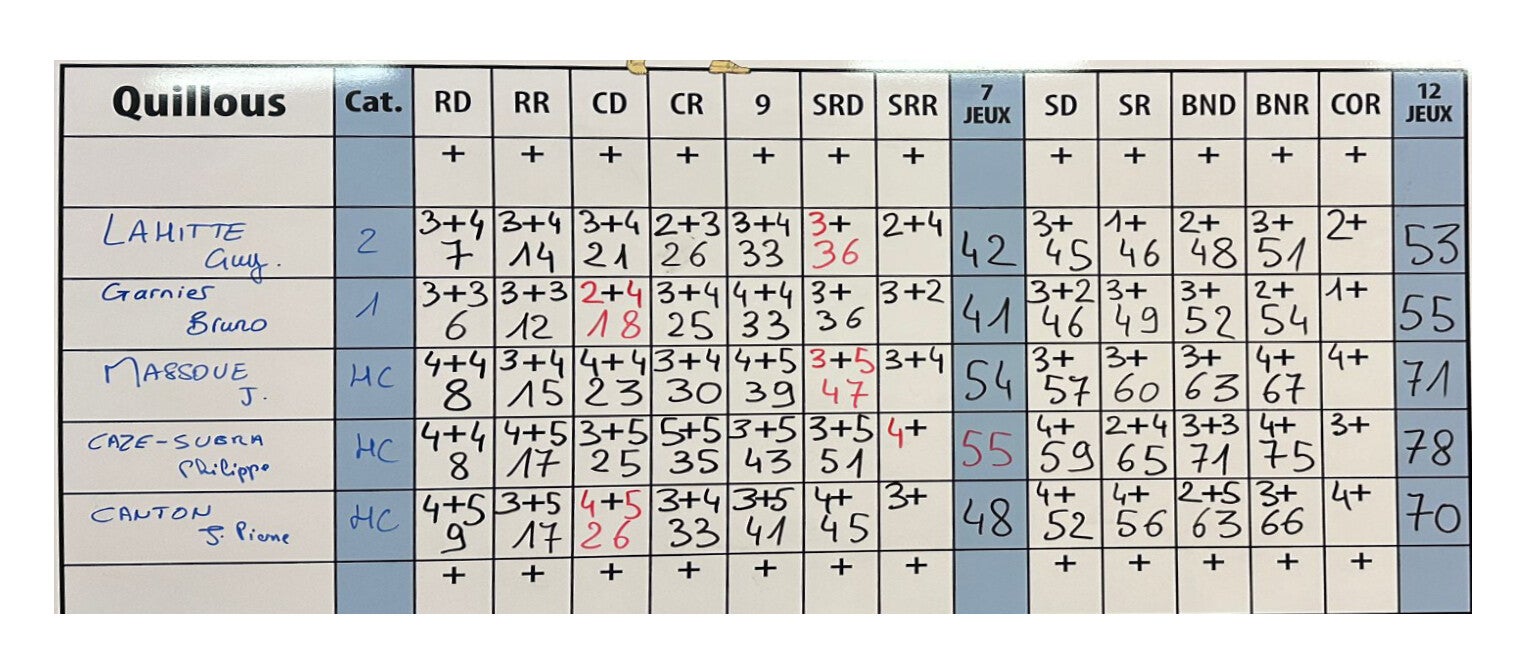 Quillous Cat. RD RR CD CR 9 SRD SRR 7 JEUX SD SR BND BNR COR 12 JEUX
+ + + + + + + + + + + +
LAHITTE 3+4 3+4 3+4 2+3 3+4 3+ 2+4 3+ 1+ 2+ 3+ 2+
Guy. 2 7 14 21 26 33 36 42 45 46 48 51 53
Garnier 3+3 3+3 2+4 3+4 4+4 3+ 3+2 3+2 3+ 3+ 2+ 1+
Bruno 1 6 12 18 25 33 36 41 46 49 52 54 55
MASSOUE 4+4 3+4 4+4 3+4 4+5 3+5 3+4 3+ 3+ 3+ 4+ 4+
J. HC 8 15 23 30 39 47 54 57 60 63 67 71
CAZE-SUBRA 4+4 4+5 3+5 5+5 3+5 3+5 4+ 4+ 2+4 3+3 4+ 3+
Philippe HC 8 17 25 35 43 51 55 59 65 71 75 78
CANTON 4+5 3+5 4+5 3+4 3+5 4+ 3+ 4+ 4+ 2+5 3+ 4+
J. Pierre HC 9 17 26 33 41 45 48 52 56 63 66 70
+ + + + + + + + + + + +